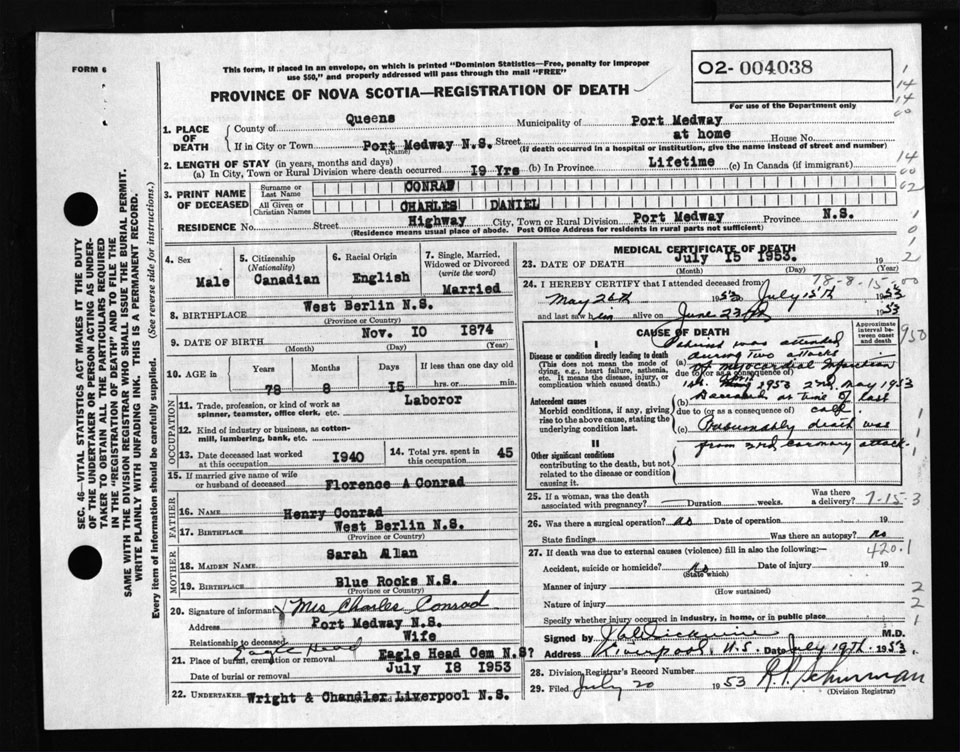 FORM 6
This form, if placed in an envelope, on which is printed "Dominion Statistics—Free, penalty for improper
use $50," and properly addressed will pass through the mail "FREE"
PROVINCE OF NOVA SCOTIA—REGISTRATION OF DEATH
O2-004038
For use of the Department only
1. PLACE OF DEATH
County of Queens Municipality of Port Medway
If in City or Town Port Medway N.S. Street at home House No.
(Name) (If death occurred in a hospital or institution, give the name instead of street and number)
2. LENGTH OF STAY (in years, months and days)
(a) In City, Town or Rural Division where death occurred 19 Yrs (b) In Province Lifetime (c) In Canada (if immigrant)
3. PRINT NAME OF DECEASED
Surname or Last Name CONRAD
All Given or Christian Names CHARLES DANIEL
RESIDENCE No. Street Highway City, Town or Rural Division Port Medway Province N.S.
(Residence means usual place of abode. Post Office Address for residents in rural parts not sufficient)
4. Sex Male
5. Citizenship (Nationality) Canadian
6. Racial Origin English
7. Single, Married, Widowed or Divorced (write the word) Married
8. BIRTHPLACE West Berlin N.S.
(Province or Country)
9. DATE OF BIRTH Nov. 10 1874
(Month) (Day) (Year)
10. AGE Years 78 Months 8 Days 15 If less than one day old hrs. or min.
OCCUPATION
11. Trade, profession, or kind of work as spinner, teamster, office clerk, etc. Laboror
12. Kind of industry or business, as cotton-mill, lumbering, bank, etc.
13. Date deceased last worked at this occupation 1940
14. Total yrs. spent in this occupation 45
15. If married give name of wife or husband of deceased Florence A Conrad
FATHER
16. Name Henry Conrad
17. Birthplace West Berlin N.S.
(Province or Country)
MOTHER
18. Maiden Name Sarah Allan
19. Birthplace Blue Rocks N.S.
(Province or Country)
20. Signature of informant Mrs Charles Conrad
Address Port Medway N.S.
Relationship to deceased Wife
Eagle Head
21. Place of burial, cremation or removal Eagle Head Cem N.S?
Date of burial or removal July 18 1953
22. UNDERTAKER Wright & Chandler Liverpool N.S.
MEDICAL CERTIFICATE OF DEATH
23. DATE OF DEATH July 15 1953. 19
(Month) (Day) (Year)
78-8-15
24. I HEREBY CERTIFY that I attended deceased from
May 26th 1950 to July 15th 1953
and last saw him alive on June 23rd 1953
CAUSE OF DEATH
Approximate interval between onset and death
I
Disease or condition directly leading to death
(This does not mean the mode of dying, e.g., heart failure, asthenia, etc. It means the disease, injury, or complication which caused death.)
(a) was attended during two attacks
due to (or as a consequence of)
of myocardial infarction
1st 1950 2nd May 1953
Antecedent causes
Morbid conditions, if any, giving rise to the above cause, stating the underlying condition last.
(b) Deceased at time of last
due to (or as a consequence of) call.
(c) Presumably death was
from 3rd coronary attack.
II
Other significant conditions
contributing to the death, but not related to the disease or condition causing it.
25. If a woman, was the death associated with pregnancy? Duration weeks. Was there a delivery?
7-15-3
26. Was there a surgical operation? no Date of operation 19
State findings Was there an autopsy? no
27. If death was due to external causes (violence) fill in also the following:—
420.1
Accident, suicide or homicide? no Date of injury 19
(State which)
Manner of injury
(How sustained)
Nature of injury
Specify whether injury occurred in industry, in home, or in public place
Signed by M.D.
Address Liverpool, N.S. Date July 19th 1953
28. Division Registrar's Record Number
29. Filed July 20 1953 R. P. Schurman
(Division Registrar)
SEC. 46—VITAL STATISTICS ACT MAKES IT THE DUTY
OF THE UNDERTAKER OR PERSON ACTING AS UNDER-
TAKER TO OBTAIN ALL THE PARTICULARS REQUIRED
IN THE "REGISTRATION OF DEATH" AND TO FILE THE
SAME WITH THE DIVISION REGISTRAR WHO SHALL ISSUE THE BURIAL PERMIT.
WRITE PLAINLY WITH UNFADING INK. THIS IS A PERMANENT RECORD.
Every item of information should be carefully supplied. (See reverse side for instructions.)